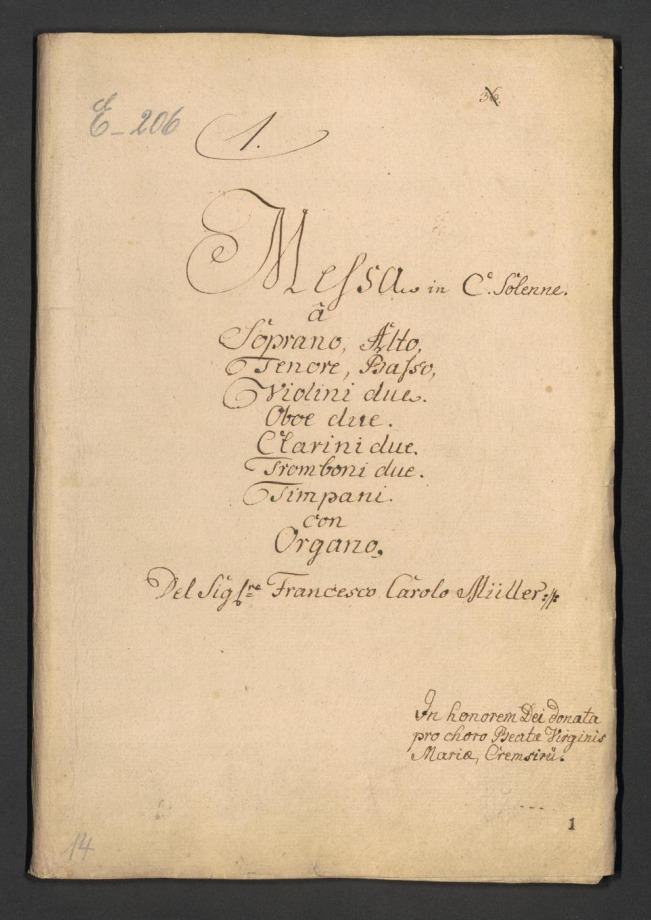 36.
E-206
1.
Messa in C. Solenne.
â
Soprano, Alto,
Tenore, Basso,
Violini due.
Oboe due.
Clarini due.
Tromboni due.
Timpani.
con
Organo,
Del Sig:re Francesco Carolo Müller
In honorem Dei donata
pro choro Beatæ Virginis
Mariæ, Cremsirÿ.
1
14